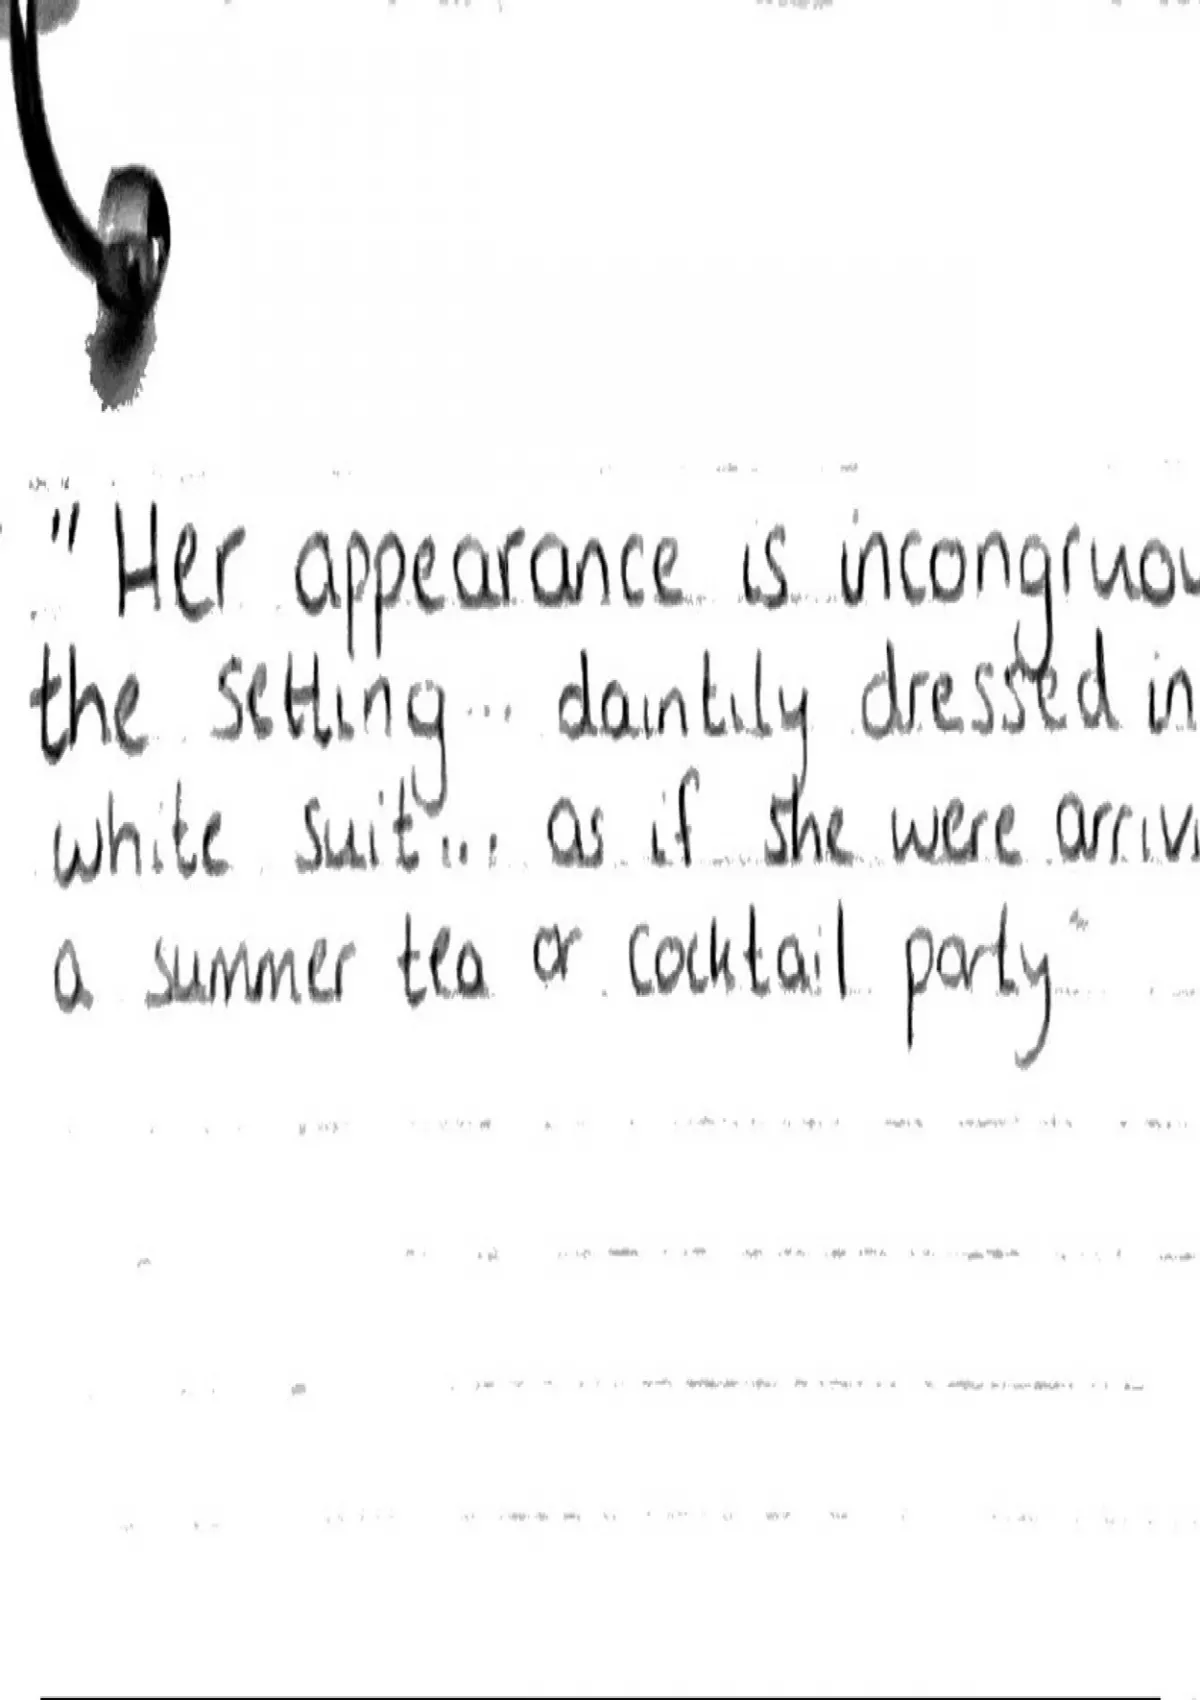 "Her appearance is incongruou
the setting... daintily dressed in
white suit... as if she were arrivi
a summer tea or cocktail party"